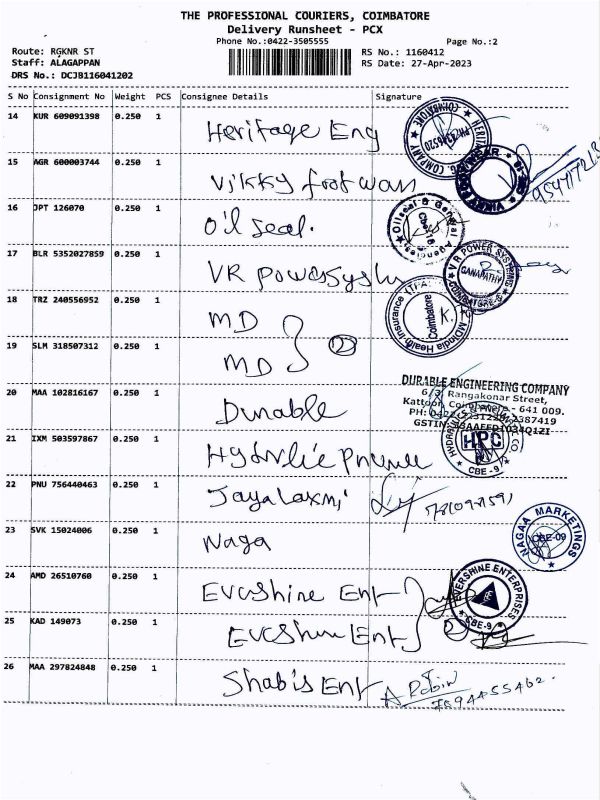 THE PROFESSIONAL COURIERS, COIMBATORE
Delivery Runsheet - PCX
Phone No.:0422-3505555 Page No.:2
Route: RGKNR ST RS No.: 1160412
Staff: ALAGAPPAN RS Date: 27-Apr-2023
DRS No.: DCJB116041202
S No Consignment No Weight PCS Consignee Details Signature
14 KUR 609091398 0.250 1 Heritage Eng
15 AGR 600003744 0.250 1 Vikky footwan
16 JPT 126070 0.250 1 Oil seal.
Oilseal & General Agencies
17 BLR 5352027859 0.250 1 VR power
VR POWER SYSTEMS GANAPATHY COIMBATORE-6
18 TRZ 240556952 0.250 1 MD
MDIndia Health Insurance Coimbatore
19 SLM 318507312 0.250 1 MD
2
20 MAA 102816167 0.250 1 Durable
DURABLE ENGINEERING COMPANY
6/3, Rangakonar Street,
Kattoor, Coimbatore - 641 009.
21 IXM 503597867 0.250 1
HPC CBE-9
22 PNU 756440463 0.250 1 Jayalaxmi
23 SVK 15024006 0.250 1 Naga
NAGAA MARKETINGS CBE-09
24 AMD 26510760 0.250 1 Evershine Ent
EVERSHINE ENTERPRISES CBE-9
25 KAD 149073 0.250 1 Evershine Ent 2
26 MAA 297824848 0.250 1 Shabis Ent A Robin
7594455462.